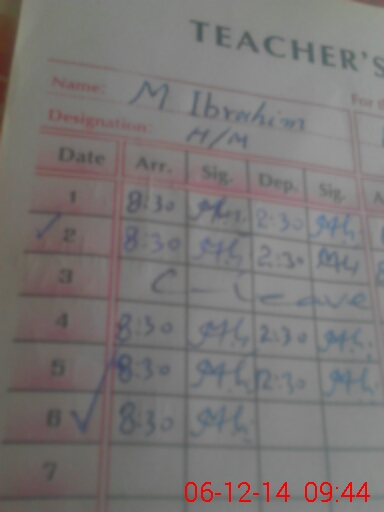 TEACHER'S
Name: M Ibrahim For t
Designation: H/M
Date Arr. Sig. Dep. Sig. A
1 8:30 2:30
2 8:30 2:30
3 C-Leave
4 8:30 2:30
5 8:30 2:30
6 8:30
7
06-12-14 09:44